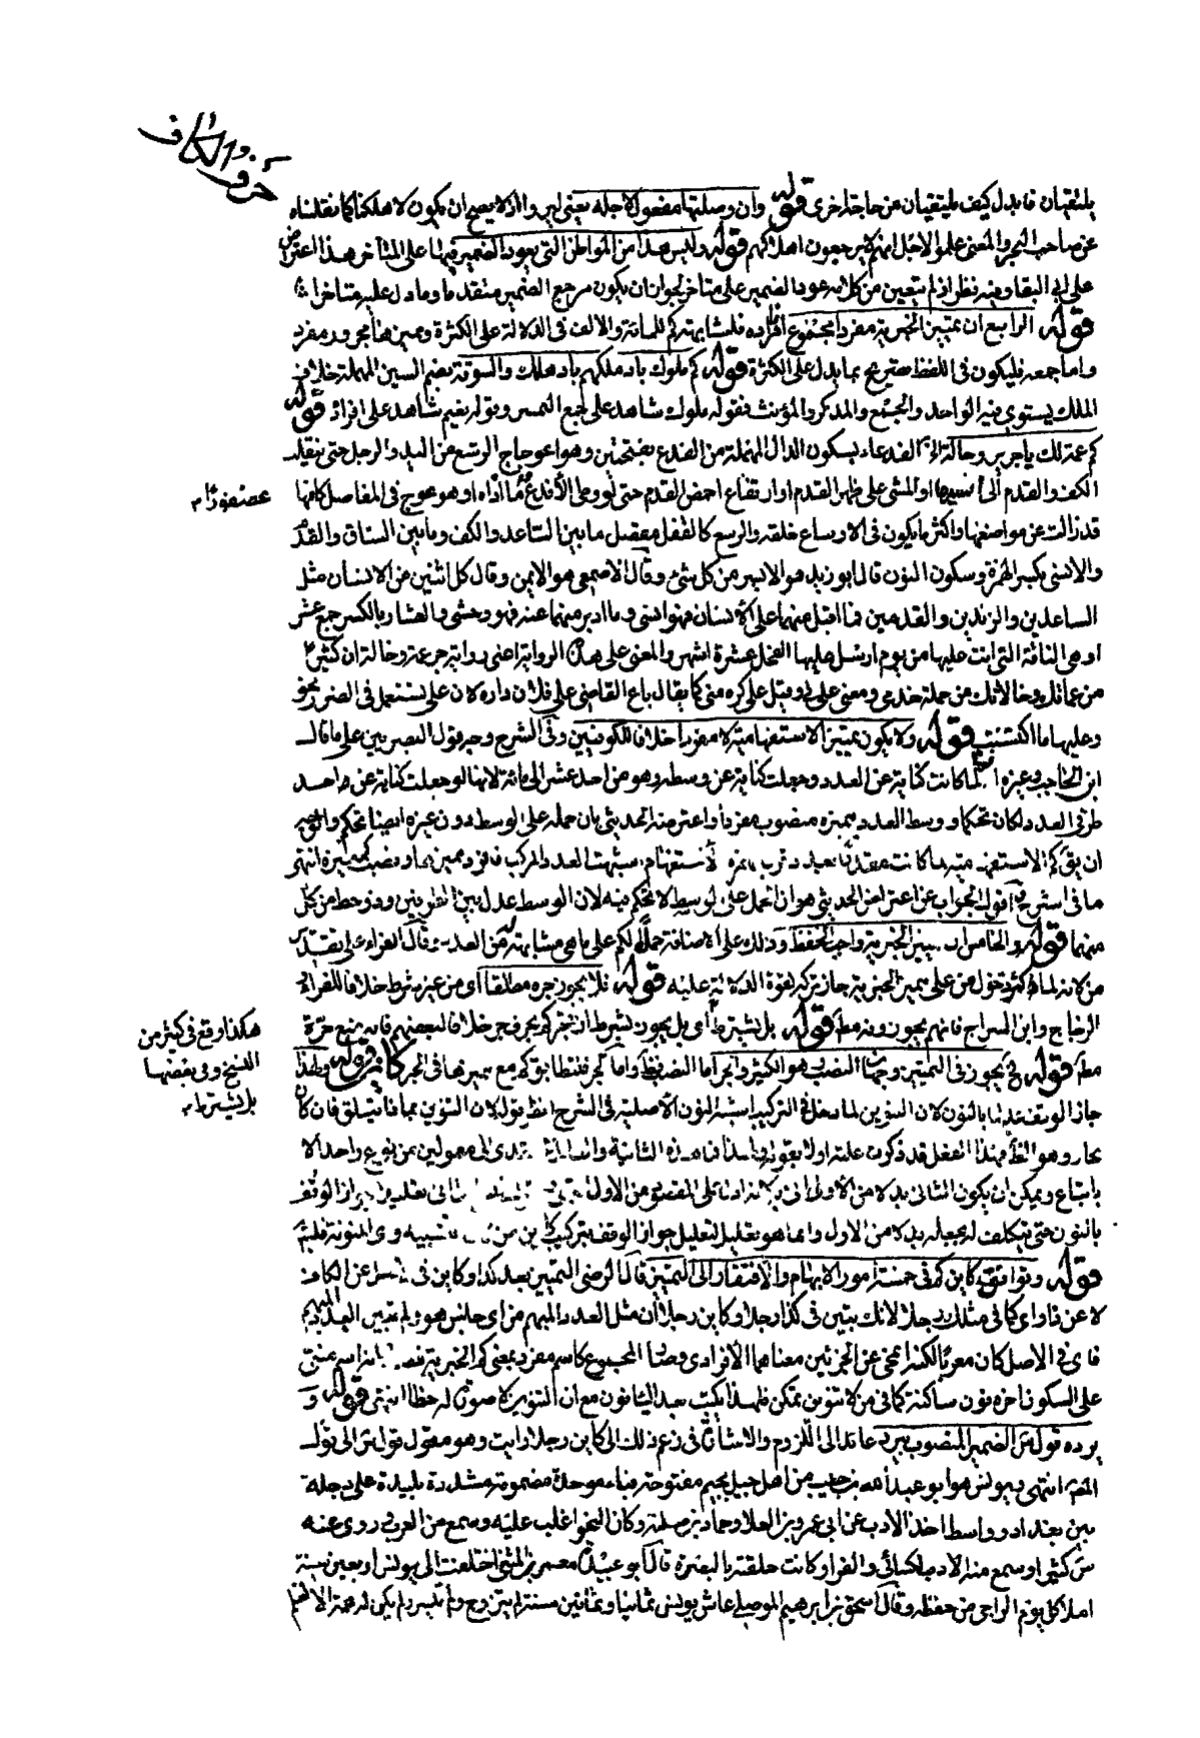 حرف الكاف
يلتقيان فابدل كيف يلتقيان من حاجة اخرى قوله وان وصلتها مفعول لاجله يعني ليروا اذ لا يصح ان يكون لاهلكنا كما نقلناه
عن صاحب البحر والمعنى علموا لاجل انهم لا يرجعون اهلاكهم قوله وليس هذا من المواطن التي يعود الضمير فيها على المتأخر هذا اعتراض
على ابي البقا وفيه نظر اذ لم يتعين من كلامه عود الضمير على متاخر لجواز ان يكون مرجع الضمير متقدما وما دل عليه متاخرا
قوله الرابع ان تمييز الخبرية مفرد او مجموع افراده فلمشابهة كم للمائة والالف في الدلالة على الكثرة ومميزهما مجرور مفرد
واما جمعه فليكون في اللفظ تصريح بما يدل على الكثرة قوله كم ملوك باد ملكهم باد هلك والسوقة بضم السين المهملة خلاف
الملك يستوي فيه الواحد والجمع والمذكر والمؤنث فقوله ملوك شاهد على جمع التمييز وقوله نعيم شاهد على افراد قوله
كم عمة لك يا جرير وخالة الفدعاء بسكون الدال المهملة من الفدع بفتحتين وهو اعوجاج الرسغ من اليد والرجل حتى ينقلب
الكف والقدم الى انسيها او المشي على ظهر القدم او ارتفاع اخمص القدم حتى لو وطئ الأفدع عصفورا ما اذاه او هو عوج في المفاصل كانها
عصفورا
قد زالت عن مواضعها واكثر ما يكون في الارساغ خلقة والرسغ كالقفل مفصل ما بين الساعد والكف وما بين الساق والقدم
والانسي بكسر الهمزة وسكون النون قال ابو زيد هو الايسر من كل شيء وقال الاصمعي هو الايمن وقال كل اثنين من الانسان مثل
الساعدين والزندين والقدمين فما اقبل منهما على الانسان فهو انسي وما ادبر منهما عنه فهو وحشي والعشار بالكسر جمع عشر
او هي الناقة التي اتت عليها من يوم ارسل عليها الفحل عشرة اشهر والمعنى على هذه الرواية اعني رواية جر عمة وخالة ان كثيرا
من عماتك وخالاتك من جملة خدمي ومعنى علي قيل على كره مني كما يقال باع القاضي على فلان داره لان على تستعمل في الضرر نحو
وعليها ما اكتسبت قوله ولا يكون تمييز الاستفهامية الا مفردا خلافا للكوفيين وفي الشرح وجه قول البصريين على ما قال
ابن الحاجب وغيره انها لما كانت كناية عن العدد وجعلت كناية عن وسطه وهو من احد عشر الى مائة لانها لو جعلت كناية عن واحد
طرفي العدد لكان تحكما ووسط العدد مميزه منصوب مفرد واعترضه الحديثي بان حمله على الوسط دون غيره ايضا تحكم
ان كم الاستفهامية لما كانت مقدرة بعدد قرن بهمزة الاستفهام شبهت العدد المركب فافرد مميزها ونصب كمميزه انتهى
ما في الشرح اقول الجواب عن اعتراض الحديثي هو ان الحمل على الوسط لا تحكم فيه لان الوسط عدل بين الطرفين من كل
منهما قوله والخامس ان تمييز الخبرية واجب الخفض وذلك على الاضافة حملا لكم على ما هي مشابهة له من العدد وقال الفراء على تقدير
من كانه لما كثر دخول من على تمييز الخبرية جاز تركه لقوة الدلالة عليه قوله فلا يجوز جره مطلقا اي من غير شرط خلافا للفراء
الزجاج وابن السراج فانهم يجوزونه مط قوله بل يشترط اي بل يجوز بشرط ان تجر كم بحرف جر خلافا لبعضهم فانه يمنع جره
هكذا وقع في كثير من
النسخ وفي بعضها
بل يشترط
مط قوله فيجوز في التمييز وجهان النصب وهو الكثير والجر اما النصب واما الجر فلتطابق كم مع مميزها في الجر كاين قوله ولهذا
جاز الوقف عليها بالنون لان التنوين لما دخل في التركيب اشبه النون الاصلية في الشرح قوله لان التنوين مما فان كان
جاز وهو فهذا الفعل قد ذكرت علته اولا بقوله ولهذا الثانية يتعدى الى معمولين من نوع واحد الا
باتباع ويمكن ان يكون الثاني بدلا من الاول المقصود من الاول الوقف
بالنون حتى يتكلف له بجعله بدلا من الاول وانما هو تعليل لتعليل جواز الوقف بتركيب كاين من كاف التشبيه واي المنونة فليتم
قوله وتوافق كاين كم في خمسة امور الابهام والافتقار الى التمييز قال الرضي التمييز بعد كذا وكاين في عن الكاف
لا عن ذا واي كما في مثلك رجلا لانك تبين في كذا رجلا وكاين رجلا ان مثل العدد المبهم من اي جنس هو ولم تبين العدد المبهم
فاي في الاصل كان معربا لكنه انمحى عن الجزئين معناهما الافرادي وصار المجموع كاسم مفرد بمعنى كم الخبرية اسم مبني
على السكون اخره نون ساكنة كما في من لا تنوين تمكن فلهذا يكتب بعد الياء نون مع ان التنوين لا صورة له خطا انتهى قوله و
يرده قولهم الضمير المنصوب بيرد عائد الى اللزوم والاشارة في زعم ذلك الى كاين رجلا رايت وهو مقول قولهم الى قوله
انتهى ويونس هو ابو عبد الله بن حبيب من اهل جبل بجيم مفتوحة فباء موحدة مضمومة مشددة بليدة على دجلة
بين بغداد وواسط اخذ الادب عن ابي عمرو بن العلا وحماد بن سلمة وكان النحو اغلب عليه وسمع من العرب روى عنه
س كثيرا وسمع منه الادب الكسائي والفرا وكانت حلقته بالبصرة قال ابو عبيدة معمر بن المثنى اختلفت الى يونس اربعين سنة
املا كل يوم الواحي من حفظه وقال اسحق بن ابرهيم الموصلي عاش يونس ثمانيا وثمانين سنة لم يتزوج ولم يتسر ولم يكن له همة الا العلم